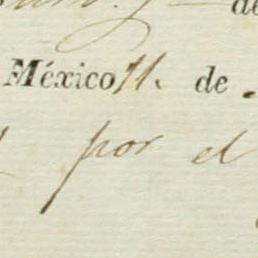 de
México 11. de
por el